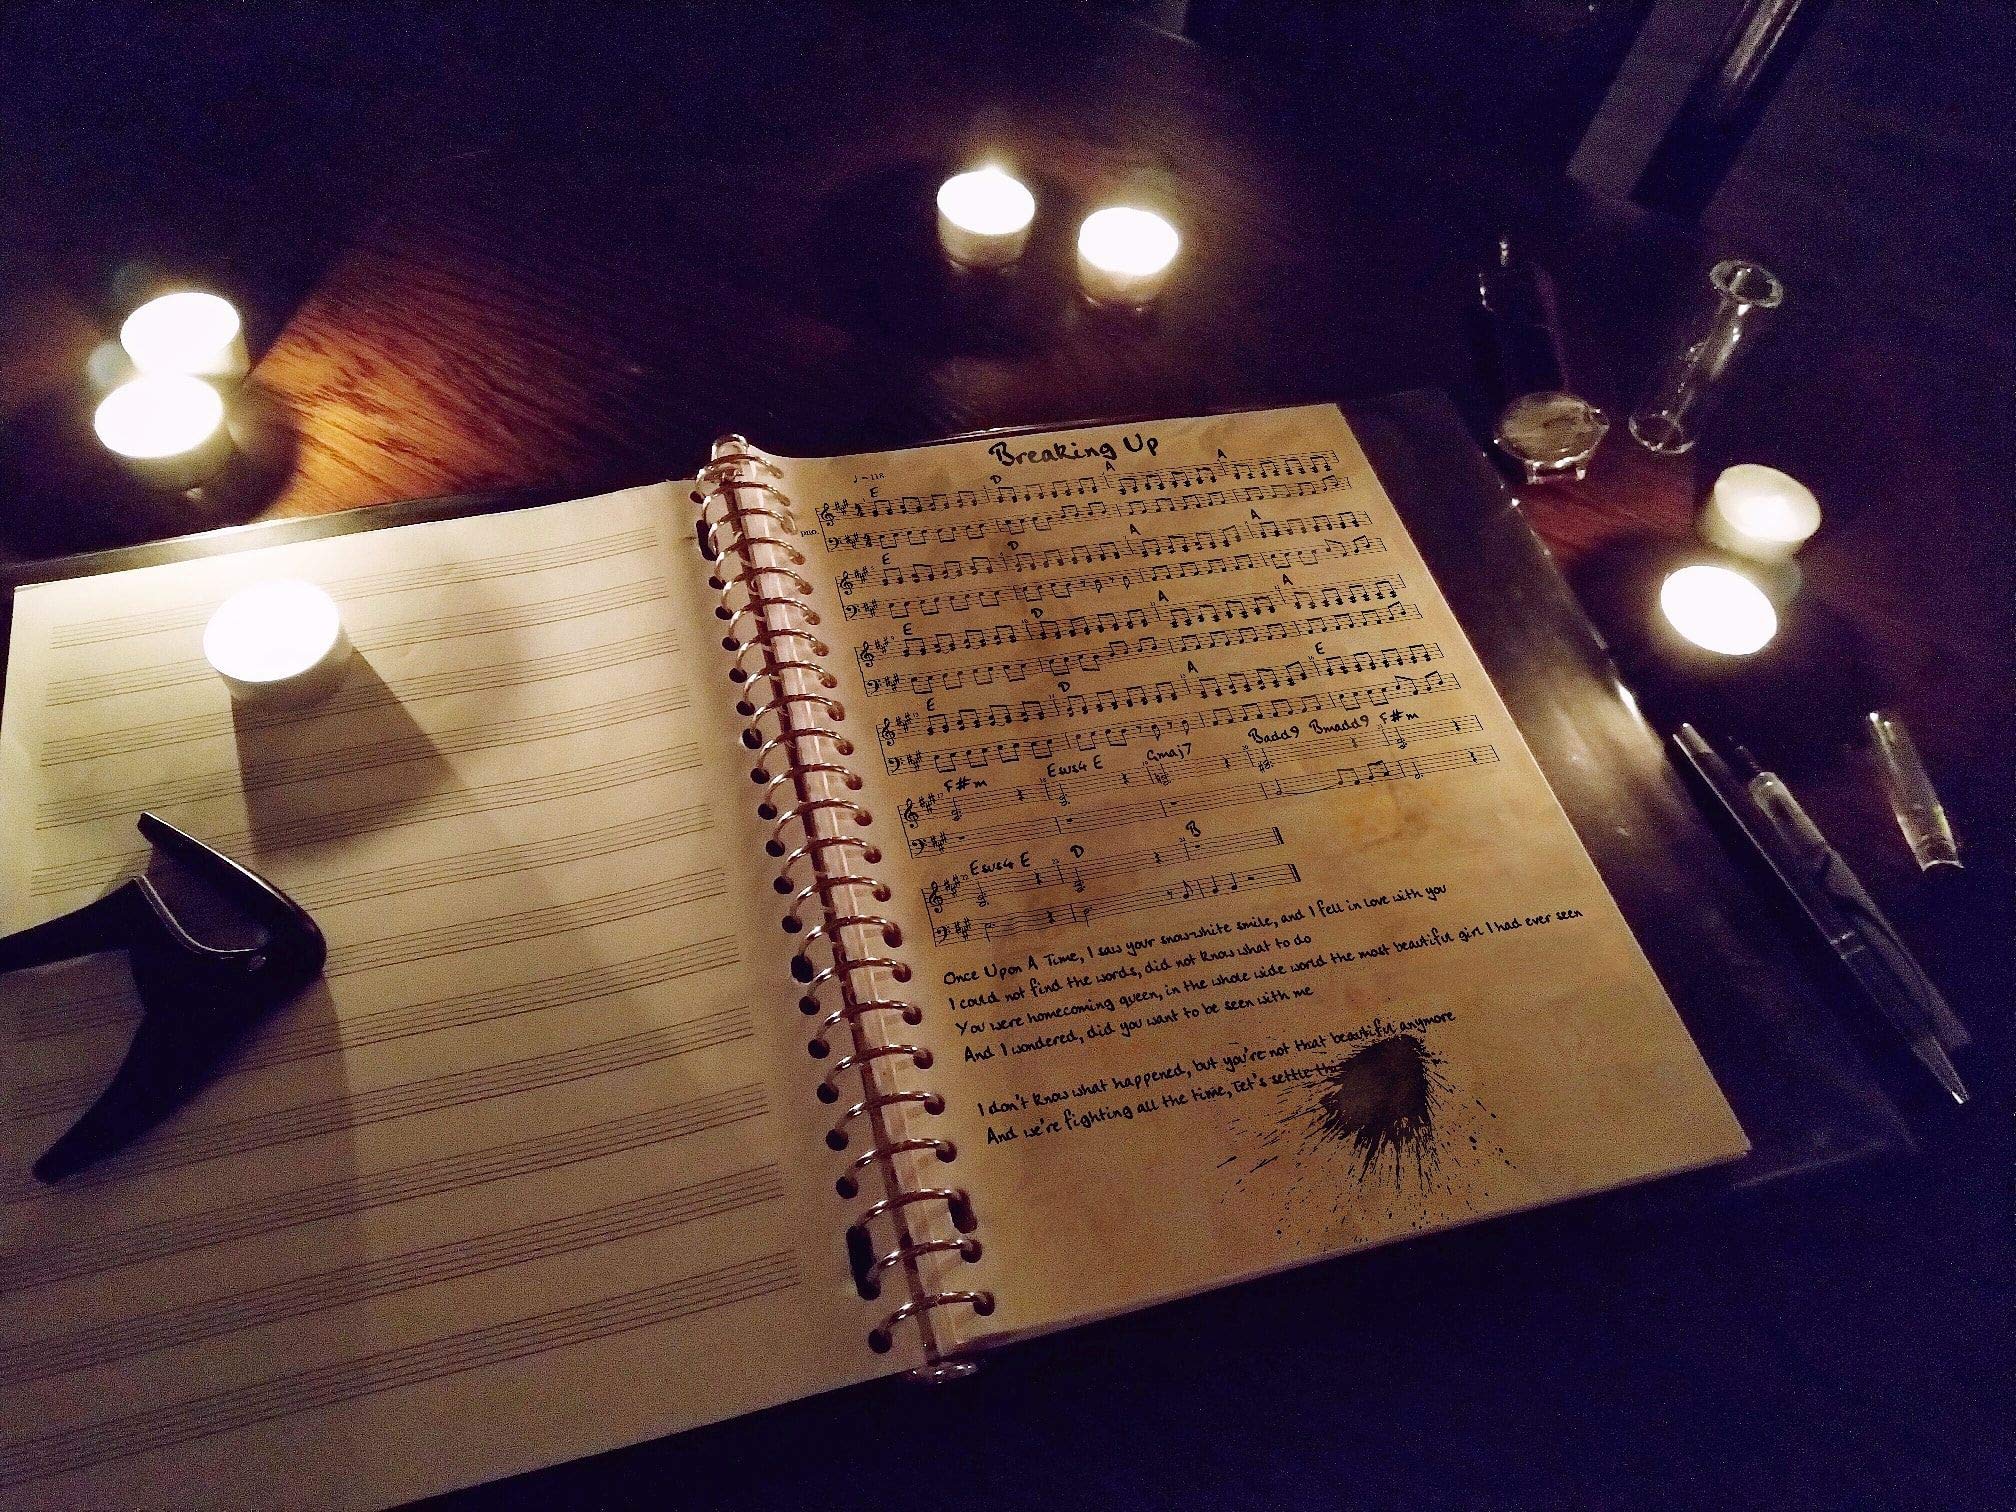 Breaking Up
♩ = 118
E D A A
Pno.
E D A A
E D A A
E D A E
F#m Esus4 E Gmaj7 Badd9 Bmadd9 F#m
Esus4 E D B
Once Upon A Time, I saw your snow-white smile, and I fell in love with you
I could not find the words, did not know what to do
You were homecoming queen, in the whole wide world the most beautiful girl I had ever seen
And I wondered, did you want to be seen with me
I don't know what happened, but you're not that beautiful anymore
And we're fighting all the time, let's settle